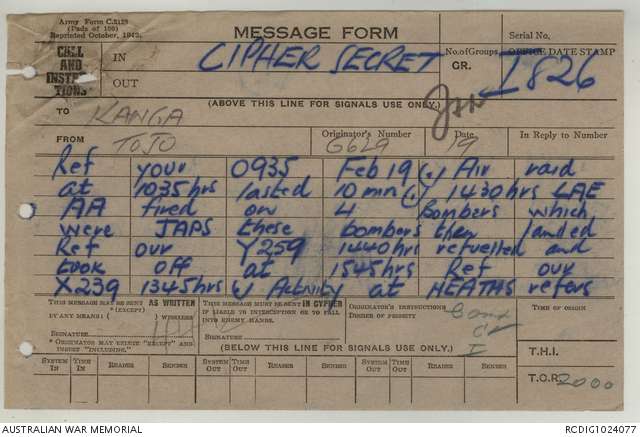 Army Form C.2128
(Pads of 100)
Reprinted October, 1942.
MESSAGE FORM
Serial No.
CALL AND INSTRUCTIONS
IN
OUT
CIPHER SECRET
No. of Groups.
GR.
OFFICE DATE STAMP
I 826
TO KANGA
(ABOVE THIS LINE FOR SIGNALS USE ONLY.)
FROM TOJO
Originator's Number G629
Date 19
In Reply to Number
Ref your 0935 Feb 19 (.) Air raid
at 1035hrs lasted 10 min (.) 1430hrs LAE
AA fired on 4 Bombers which
were JAPS these bombers then landed
Ref our Y259 1440hrs refuelled and
took off at 1545hrs Ref our
X239 1345hrs (.) Activity at HEATHS refers
THIS MESSAGE MAY BE SENT AS WRITTEN
(*EXCEPT)
BY ANY MEANS ( ) WIRELESS
SIGNATURE
* ORIGINATOR MAY DELETE "EXCEPT" AND INSERT "INCLUDING."
THIS MESSAGE MUST BE SENT IN CYPHER
IF LIABLE TO INTERCEPTION OR TO FALL INTO ENEMY HANDS.
SIGNATURE
ORIGINATOR'S INSTRUCTIONS
DEGREE OF PRIORITY
I
TIME OF ORIGIN
(BELOW THIS LINE FOR SIGNALS USE ONLY.)
T.H.I.
SYSTEM IN TIME IN READER SENDER SYSTEM OUT TIME OUT READER SENDER SYSTEM OUT TIME OUT READER SENDER
T.O.R. 2000
AUSTRALIAN WAR MEMORIAL
RCDIG1024077